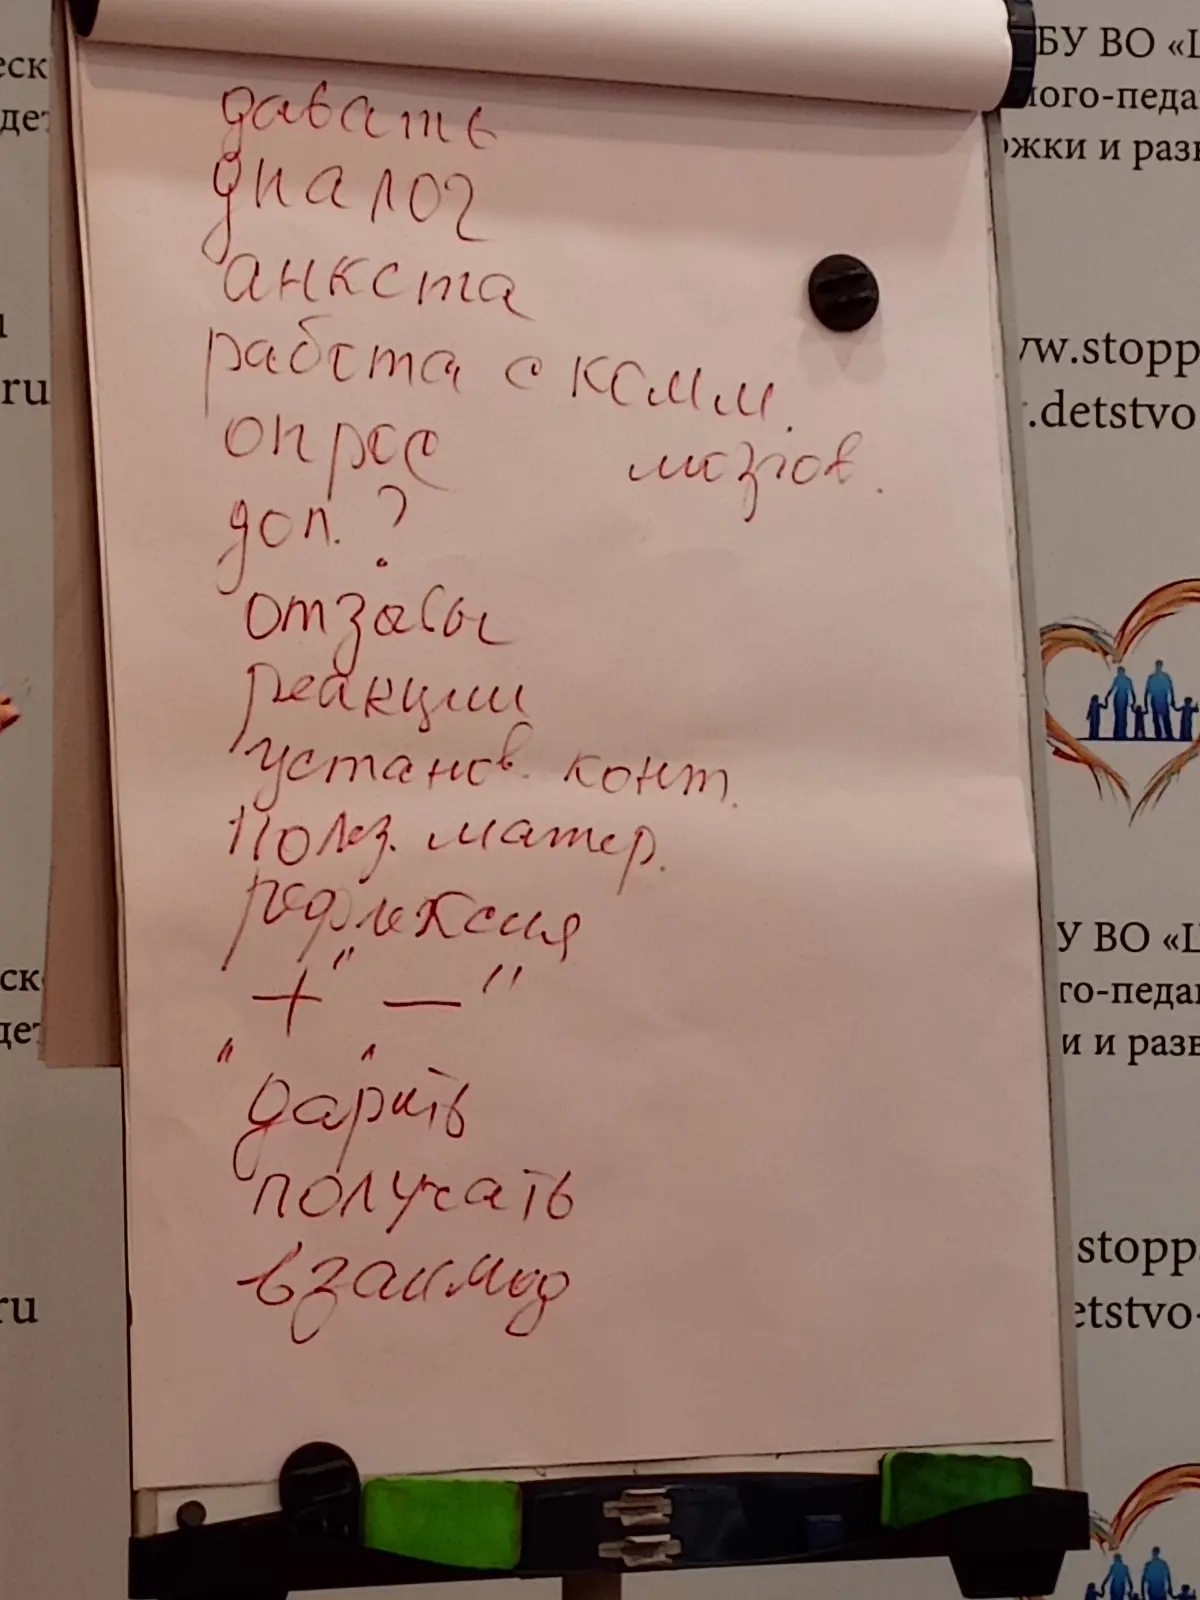 давать
диалог
анкета
работа с комм.
опрос мозгов.
доп. ?
отзывы
реакции
установ. конт.
Полез. матер.
рефлексия
"+" "—"
дарить
получать
взаимод
БУ ВО «Ц
ного-педа
ожки и разв
www.stopp
.detstvo
У ВО «Ц
го-педа
и и разв
stopp
etstvo-
еск
дет
ru
ск
дет
ru